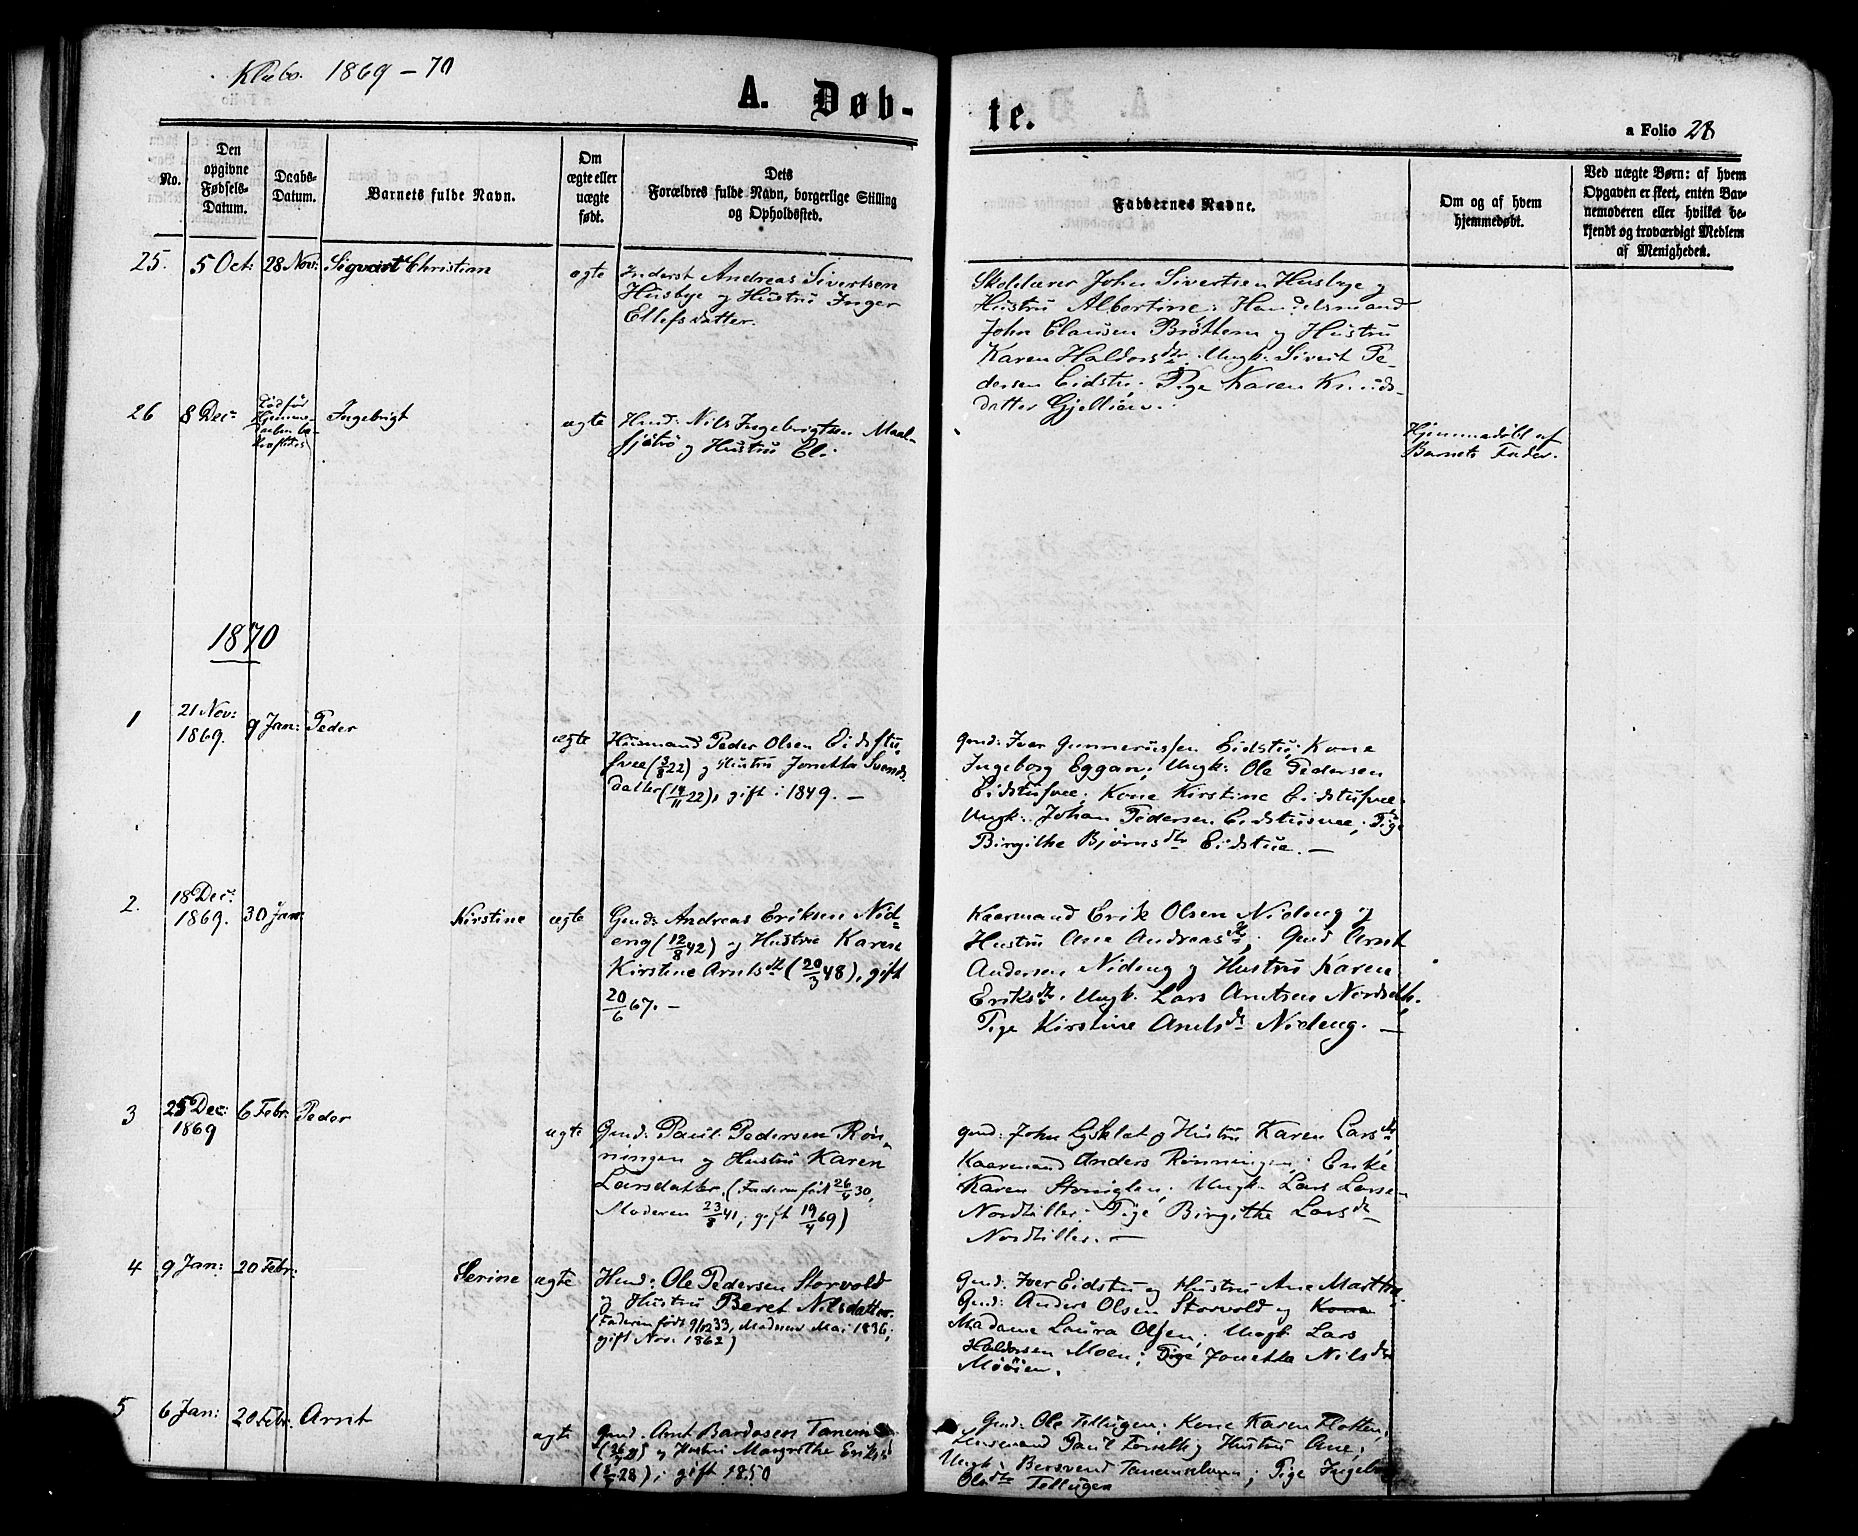 Klæbo. 1869-70
A. Døb-
te.
a Folio 28
No.
Den
opgivne
Fødsels-
Datum.
Daabs-
Datum.
Barnets fulde Navn.
Om
ægte eller
uægte
født.
Dets
Forældres fulde Navn, borgerlige Stilling
og Opholdssted.
Faddernes Navne.
Om og af hvem
hjemmedøbt.
Ved uægte Børn: af hvem
Opgaven er skeet, enten Bar-
nemoderen eller hvilket be-
kjendt og troværdigt Medlem
af Menigheden.
25. 5 Oct: 28 Nov: Sigvart Christian ægte
Inderst Andreas Sivertsen
Husbye og Hustru Inger
Ellefsdatter.
Skolelærer John Sivertsen Husbye og
Hustru Albertine; Handelsmand
John Clausen Brøttem og Hustru
Karen Haldorsdtr. Ungk: Sivert Pe-
dersen Eidstu; Pige Karen Knuds-
datter Gjellien.
26 8 Dec: Død før
Hjemme-
daaben be-
kræftedes
Ingebrigt ægte
Husd: Nils Ingebrigtsen Maal-
sjøbro og Hustru Eli
Hjemmedøbt af
Barnets Fader.
1870
1 21 Nov:
1869. 9 Jan: Peder ægte
Husmand Peder Olsen Eidstu
svee (3/8 22) og Hustru Jonetta Svends
datter (14/11 22), gift i 1849. —
Gmd: Iver Gunnerussen Eidstu; Kone
Ingeborg Eggan; Ungk: Ole Pedersen
Eidstusvee; Kone Kirstine Eidstusvee;
Ungk: Johan Pedersen Eidstusvee; Pige
Birgithe Bjørnsdtr Eidstue. —
2. 18 Dec:
1869. 30 Jan: Kirstine ægte
Gmd: Andreas Eriksen Nid=
eng (12/8 42) og Hustru Karen
Kirstine Arntsdt (20/3 48), gift
20/6 67. —
Kaarmand Erik Olsen Nideng og
Hustru Ane Andreasdt; Gmd Arnt
Andersen Nideng og Hustru Karen
Eriksdtr. Ungk. Lars Arntsen Nordseth.
Pige Kirstine Arntsdtr Nideng. —
3 25 Dec:
1869 6 Febr: Peder ægte
Gmd: Paul Pedersen Røn-
ningen og Hustru Karen
Larsdatter. (Faderen født 26/4 30,
Moderen 23/8 41; gift 19/4 69)
Gmd: John Lysklet og Hustru Karen Larsdtr
Kaarmand Anders Rønningen; Enke
Karen; Ungk. Lars Larsen
Nordtiller; Pige Birgithe Larsdt
Nordtiller. —
4 9 Jan: 20 Febr: Serine ægte
Husd: Ole Pedersen Storvold
og Hustru Beret Nilsdatter.
(Faderen født 9/12 33, Moderen Mai 1836;
gift Nov. 1862)
Gmd: Iver Eidstu og Hustru Ane Martha;
Gmd: Anders Olsen Storvold og Kone
Madame Laura Olsen; Ungk. Lars
Haldorsen Moen; Pige Jonetta Nilsdtr
Mooien.
5 6 Jan: 20 Febr: Arnt ægte
Gmd: Arnt Bardosen Tanem
og Hustru Margrethe Eriksd
gift 1850
Gmd: Ole Tellugen; Kone Karen Flotten;
Husmand Paul og Hustru Ane;
Ungk: Bersvend; Pige Ingebor
Olsdtr Tellugen